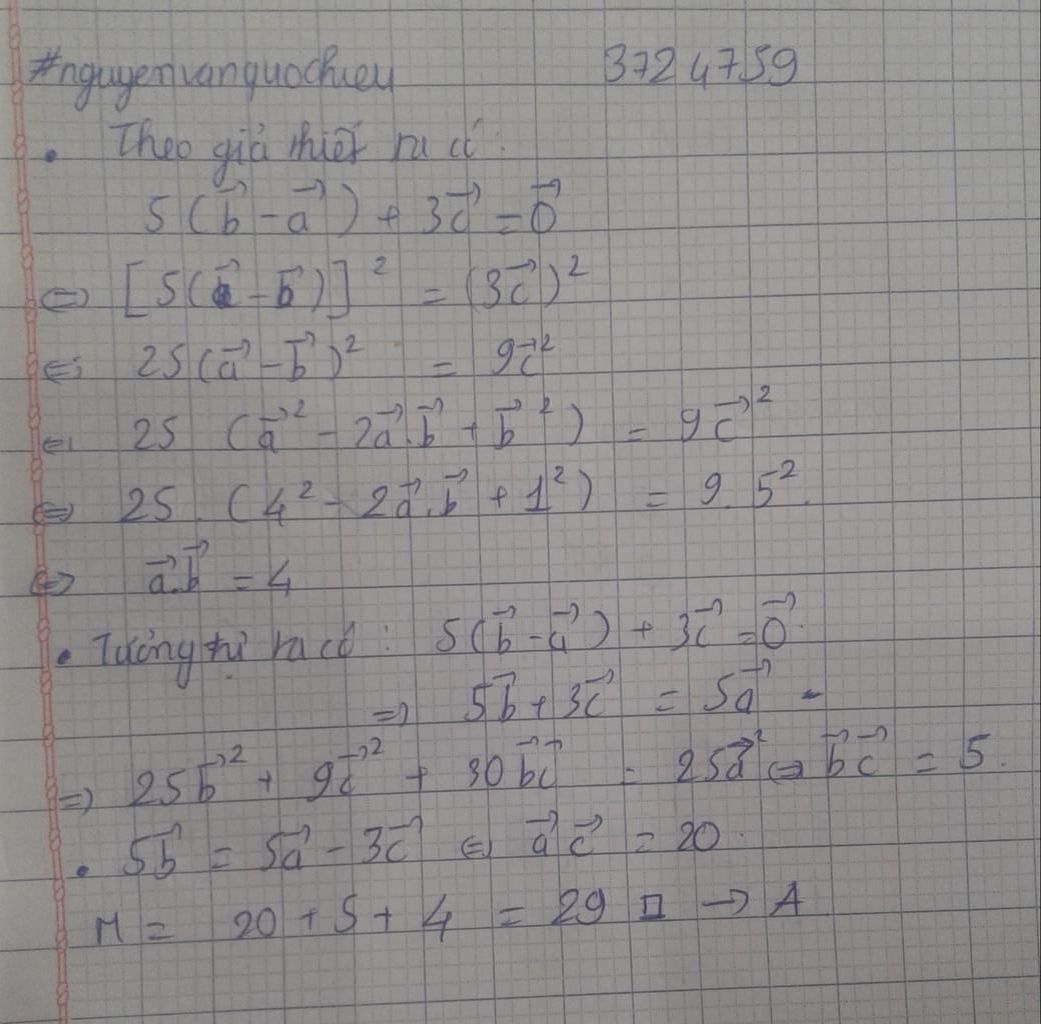 #nguyenvanquochieu 3724759
• Theo giả thiết ta có :
5(b⃗ - a⃗) + 3c⃗ = 0⃗
⇔ [5(a⃗ - b⃗)]² = (3c⃗)²
⇔ 25(a⃗ - b⃗)² = 9c⃗²
⇔ 25 (a⃗² - 2a⃗.b⃗ + b⃗²) = 9c⃗²
⇔ 25. (4² - 2a⃗.b⃗ + 1²) = 9.5².
⇔ a⃗.b⃗ = 4
• Tương tự ta có : 5(b⃗ - a⃗) + 3c⃗ = 0⃗.
⇒ 5b⃗ + 3c⃗ = 5a⃗ -
⇒ 25b⃗² + 9c⃗² + 30b⃗c⃗ = 25a⃗² ⇔ b⃗c⃗ = 5.
• 5b⃗ = 5a⃗ - 3c⃗ ⇔ a⃗c⃗ = 20.
M = 20 + 5 + 4 = 29 □ → A